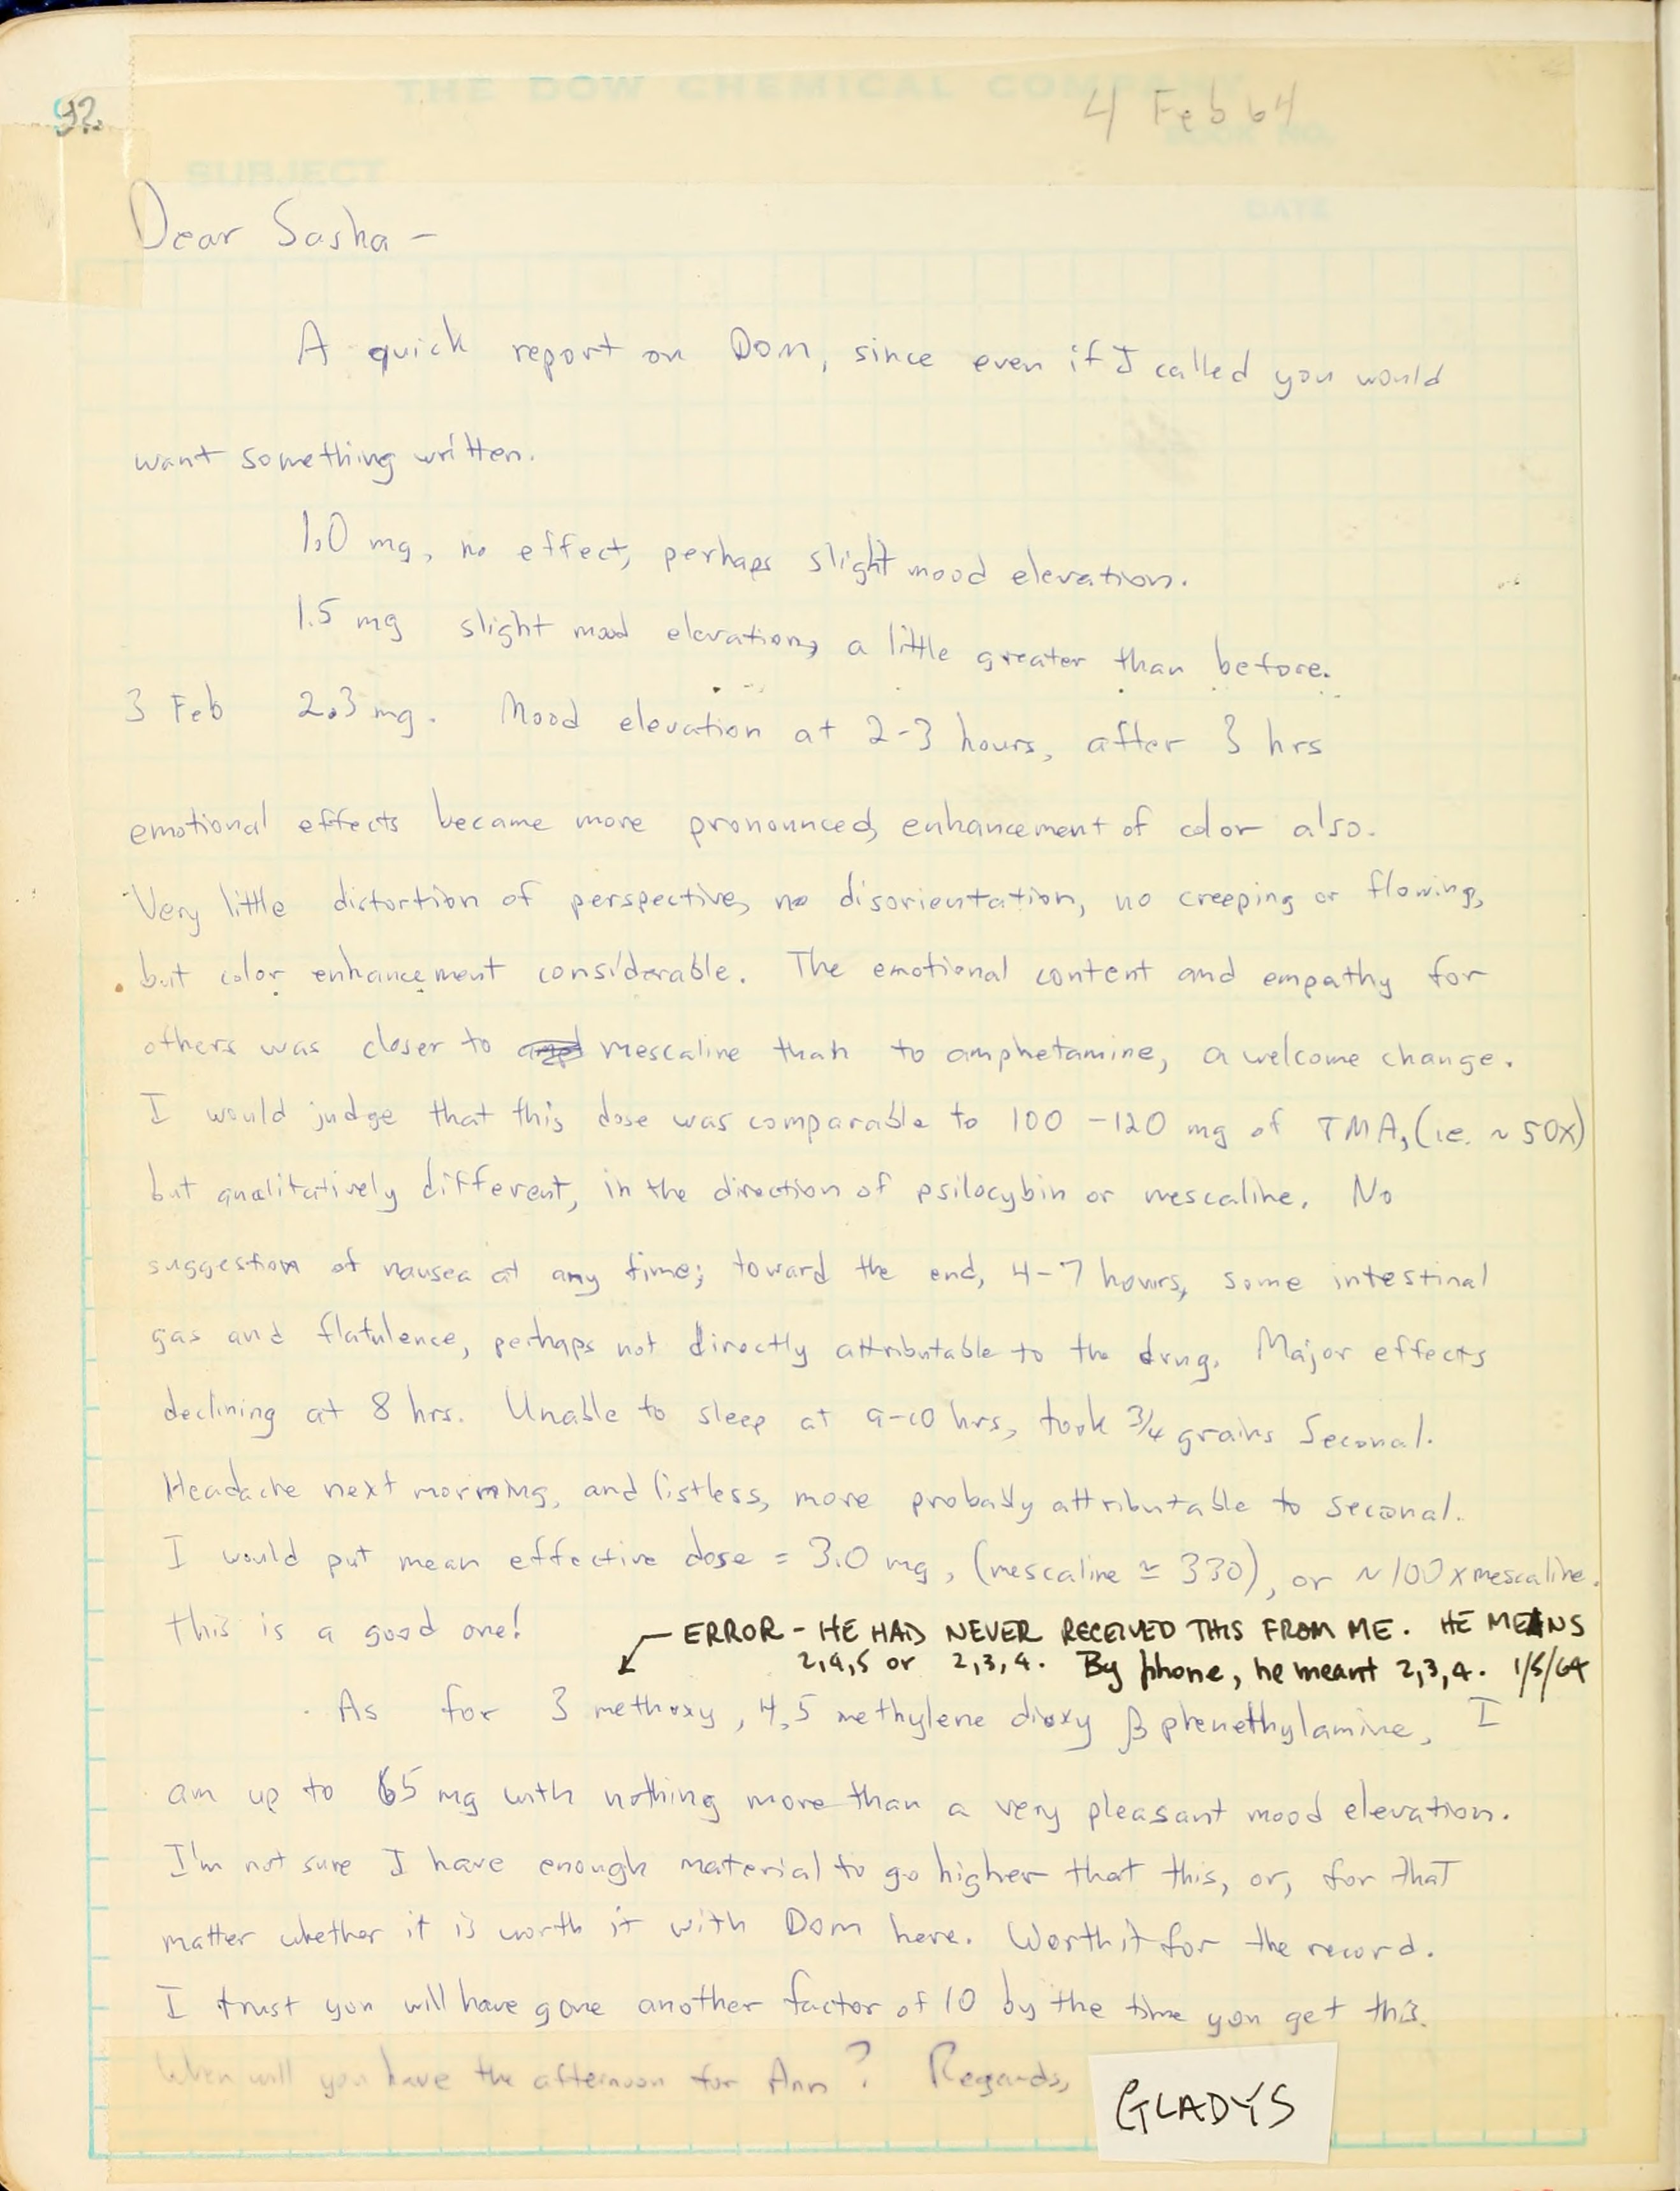 THE DOW CHEMICAL COMPANY
92.
4 Feb 64
BOOK NO.
SUBJECT
DATE
Dear Sasha -
A quick report on DOM, since even if I called you would
want something written.
1.0 mg, no effect, perhaps slight mood elevation.
1.5 mg slight mood elevation, a little greater than before.
3 Feb 2.3 mg. Mood elevation at 2-3 hours, after 3 hrs
emotional effects became more pronounced, enhancement of color also.
Very little distortion of perspective, no disorientation, no creeping or flowing,
but color enhancement considerable. The emotional content and empathy for
others was closer to mescaline than to amphetamine, a welcome change.
I would judge that this dose was comparable to 100 -120 mg of TMA, (ie. ~ 50x)
but qualitatively different, in the direction of psilocybin or mescaline. No
suggestion of nausea at any time; toward the end, 4-7 hours, some intestinal
gas and flatulence, perhaps not directly attributable to the drug. Major effects
declining at 8 hrs. Unable to sleep at 9-10 hrs, took 3/4 grains Seconal.
Headache next morning, and listless, more probably attributable to seconal.
I would put mean effective dose = 3.0 mg, (mescaline ≃ 330), or ~100 x mescaline.
this is a good one!
ERROR - HE HAD NEVER RECEIVED THIS FROM ME. HE MEANS
2,4,5 or 2,3,4. By phone, he meant 2,3,4. 1/5/64
As for 3 methoxy, 4,5 methylene dioxy β phenethylamine, I
am up to 65 mg with nothing more than a very pleasant mood elevation.
I'm not sure I have enough material to go higher that this, or, for that
matter whether it is worth it with DOM here. Worth it for the record.
I trust you will have gone another factor of 10 by the time you get this.
When will you have the afternoon for Ann? Regards,
GLADYS